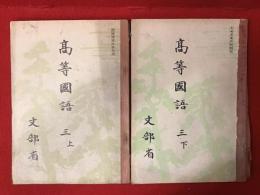 高等國語
三上
文部省
高等國語
三下
文部省